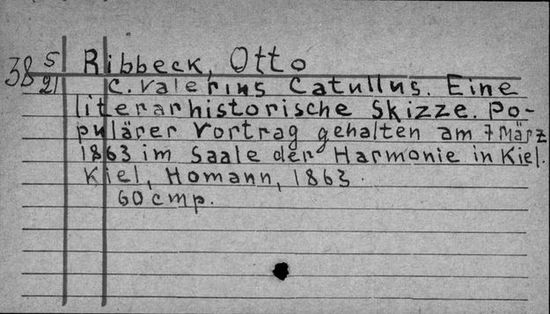 38 5/21 Ribbeck, Otto
C. Valerius Catullus. Eine
literarhistorische Skizze. Po-
pulärer Vortrag gehalten am 7 März
1863 im Saale der Harmonie in Kiel.
Kiel, Homann, 1863.
60 cmp.